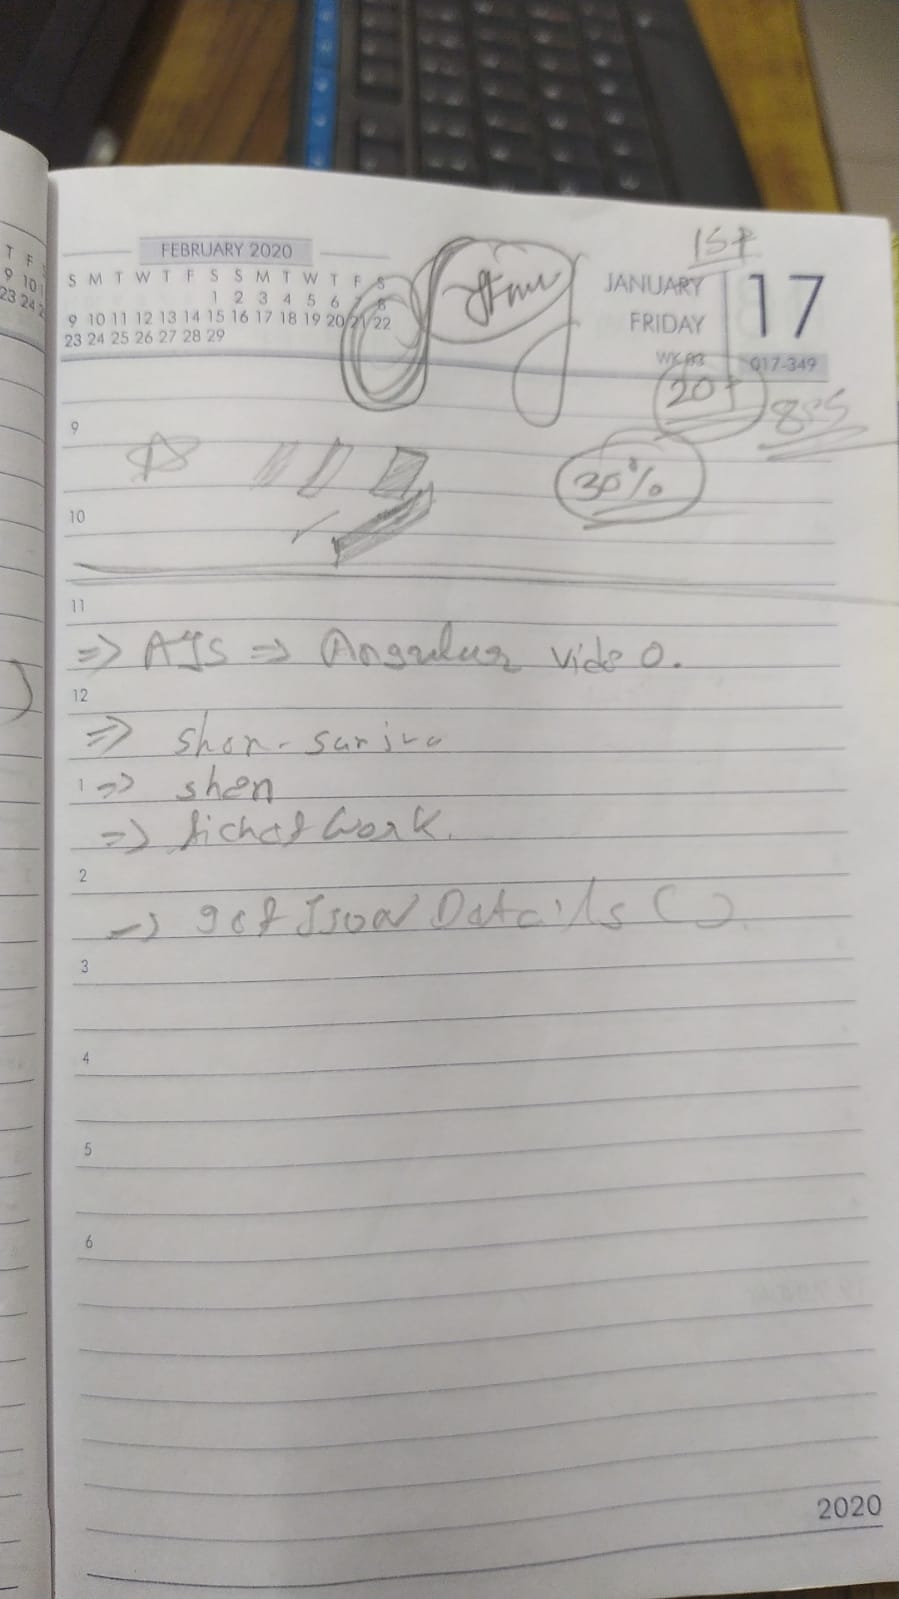 FEBRUARY 2020
S M T W T F S S M T W T F S
1 2 3 4 5 6 7 8
9 10 11 12 13 14 15 16 17 18 19 20 21 22
23 24 25 26 27 28 29
JANUARY
FRIDAY
WK 03
17
017-349
20+
30%
9
10
11
=> AJS => Angular video.
12
=> shon-
1 => shen
=> work.
2
=> get Json Details ( )
3
4
5
6
2020
T F S
9 10
23 24